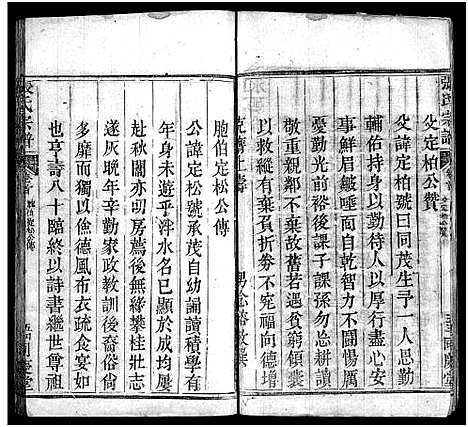 張氏宗譜
父定柏公贊
父諱定柏號曰同茂生予一人
輔佑持身以勤待人以良居心
事鮮眉皺唾面自乾智力不
憂勤光前裕後課子課孫勿忘耕讀
敬重親鄰不棄故舊若遇貧窮
以救縱有棄負折彼不向德增
克躋上壽
男
撰
胞伯定松公傳
公諱定松號承茂自幼誦讀積學有
年身未遊乎泮水名已顯於成均屢
赴秋闈亦叨房薦後無緣攀桂壯志
遂灰晚年辛勤家政教訓後裔俗尚
多靡而獨以儉德風布衣疏食宴如
也享壽八十臨終以詩書繼世尊祖
張氏宗譜
胞伯定松公傳
同慶堂